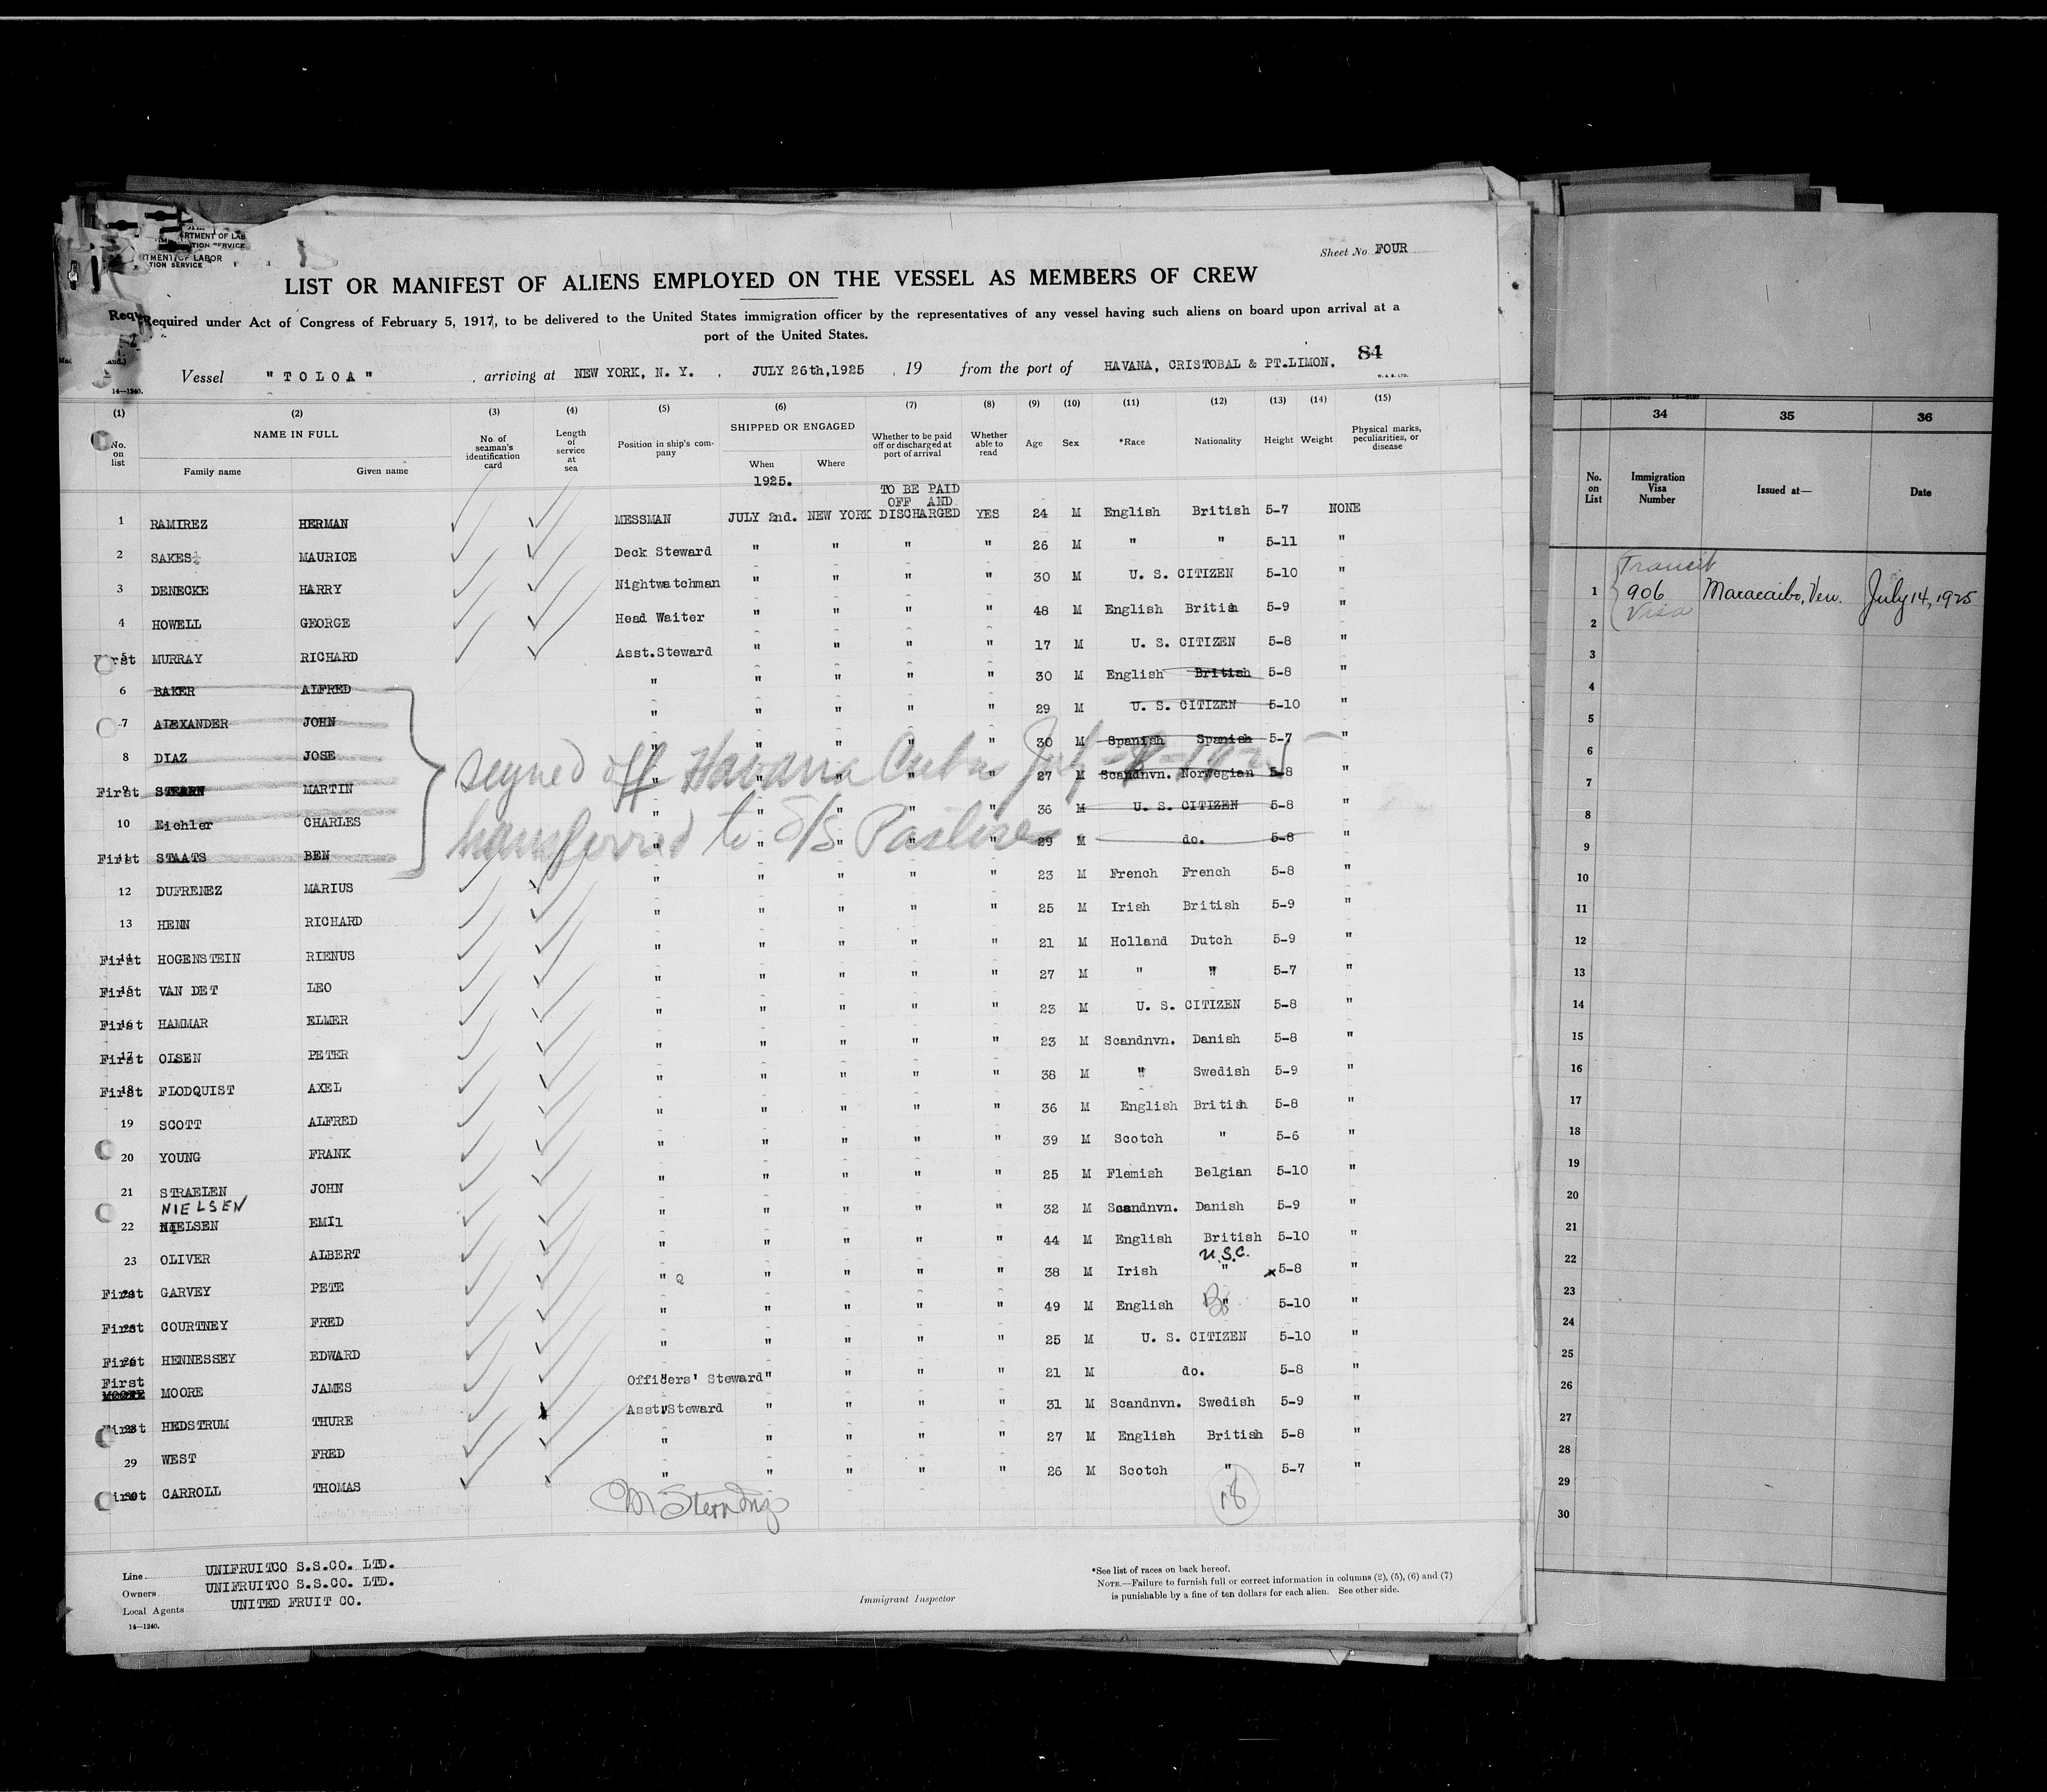 RTMENT OF LAB
TION SERVICE
TMENT OF LABOR
TION SERVICE
Sheet No. FOUR
LIST OR MANIFEST OF ALIENS EMPLOYED ON THE VESSEL AS MEMBERS OF CREW
Required under Act of Congress of February 5, 1917, to be delivered to the United States immigration officer by the representatives of any vessel having such aliens on board upon arrival at a
port of the United States.
84
Vessel "TOLOA", arriving at NEW YORK, N. Y., JULY 26th,1925, 19 from the port of HAVANA, CRISTOBAL & PT.LIMON.
14—1240.
(1) (2) (3) (4) (5) (6) (7) (8) (9) (10) (11) (12) (13) (14) (15)
No. on list NAME IN FULL Family name Given name No. of seaman's identification card Length of service at sea Position in ship's company SHIPPED OR ENGAGED When Where Whether to be paid off or discharged at port of arrival Whether able to read Age Sex *Race Nationality Height Weight Physical marks, peculiarities, or disease
1925.
TO BE PAID
OFF AND
1 RAMIREZ HERMAN MESSMAN JULY 2nd. NEW YORK DISCHARGED YES 24 M English British 5-7 NONE
2 SAKES HERMAN MAURICE Deck Steward " " " " 26 M " " 5-11 "
3 DENECKE HARRY Nightwatchman " " " " 30 M U. S. CITIZEN 5-10 "
4 HOWELL GEORGE Head Waiter " " " " 48 M English British 5-9 "
First MURRAY RICHARD Asst.Steward " " " " 17 M U. S. CITIZEN 5-8 "
6 BAKER ALFRED " " " " " 30 M English British 5-8 "
7 ALEXANDER JOHN " " " " " 29 M U. S. CITIZEN 5-10 "
8 DIAZ JOSE " " " " " 30 M Spanish Spanish 5-7 "
signed off Havana Cuba July
First 9 STEARN MARTIN " " " " " 27 M Scandnvn. Norwegian 5-8 "
10 Eichler CHARLES " " " " " 36 M U. S. CITIZEN 5-8 "
transferred to S/S Pastores
First 11 STAATS BEN " " " " " 29 M do. 5-8 "
12 DUFRENEZ MARIUS " " " " " 23 M French French 5-8 "
13 HENN RICHARD " " " " " 25 M Irish British 5-9 "
First 14 HOGENSTEIN RIENUS " " " " " 21 M Holland Dutch 5-9 "
First 15 VAN DET LEO " " " " " 27 M " " 5-7 "
First 16 HAMMAR ELMER " " " " " 23 M U. S. CITIZEN 5-8 "
First 17 OLSEN PETER " " " " " 23 M Scandnvn. Danish 5-8 "
First 18 FLODQUIST AXEL " " " " " 38 M " Swedish 5-9 "
19 SCOTT ALFRED " " " " " 36 M English British 5-8 "
20 YOUNG FRANK " " " " " 39 M Scotch " 5-6 "
21 STRAELEN JOHN " " " " " 25 M Flemish Belgian 5-10 "
NIELSEN
22 NIELSEN EMIl " " " " " 32 M Scandnvn. Danish 5-9 "
23 OLIVER ALBERT " " " " " 44 M English British 5-10 "
U.S.C.
First 24 GARVEY PETE " " " " " 38 M Irish " x 5-8 "
First 25 COURTNEY FRED " " " " " 49 M English " 5-10 "
First 26 HENNESSEY EDWARD " " " " " 25 M U. S. CITIZEN 5-10 "
First
MOORE MOORE JAMES Officers' Steward " " " " 21 M do. 5-8 "
First 28 HEDSTRUM THURE Asst.Steward " " " " 31 M Scandnvn. Swedish 5-9 "
29 WEST FRED " " " " " 27 M English British 5-8 "
First 30 CARROLL THOMAS " " " " " 26 M Scotch " 5-7 "
18
Line UNIFRUITCO S.S.CO. LTD.
Owners UNIFRUITCO S.S.CO. LTD.
Local Agents UNITED FRUIT CO.
14—1240.
Immigrant Inspector
*See list of races on back hereof.
NOTE.—Failure to furnish full or correct information in columns (2), (5), (6) and (7)
is punishable by a fine of ten dollars for each alien. See other side.
34 35 36
No. on List Immigration Visa Number Issued at— Date
Transit
1 906 Maracaibo, Ven. July 14, 1925
Visa
2
3
4
5
6
7
8
9
10
11
12
13
14
15
16
17
18
19
20
21
22
23
24
25
26
27
28
29
30